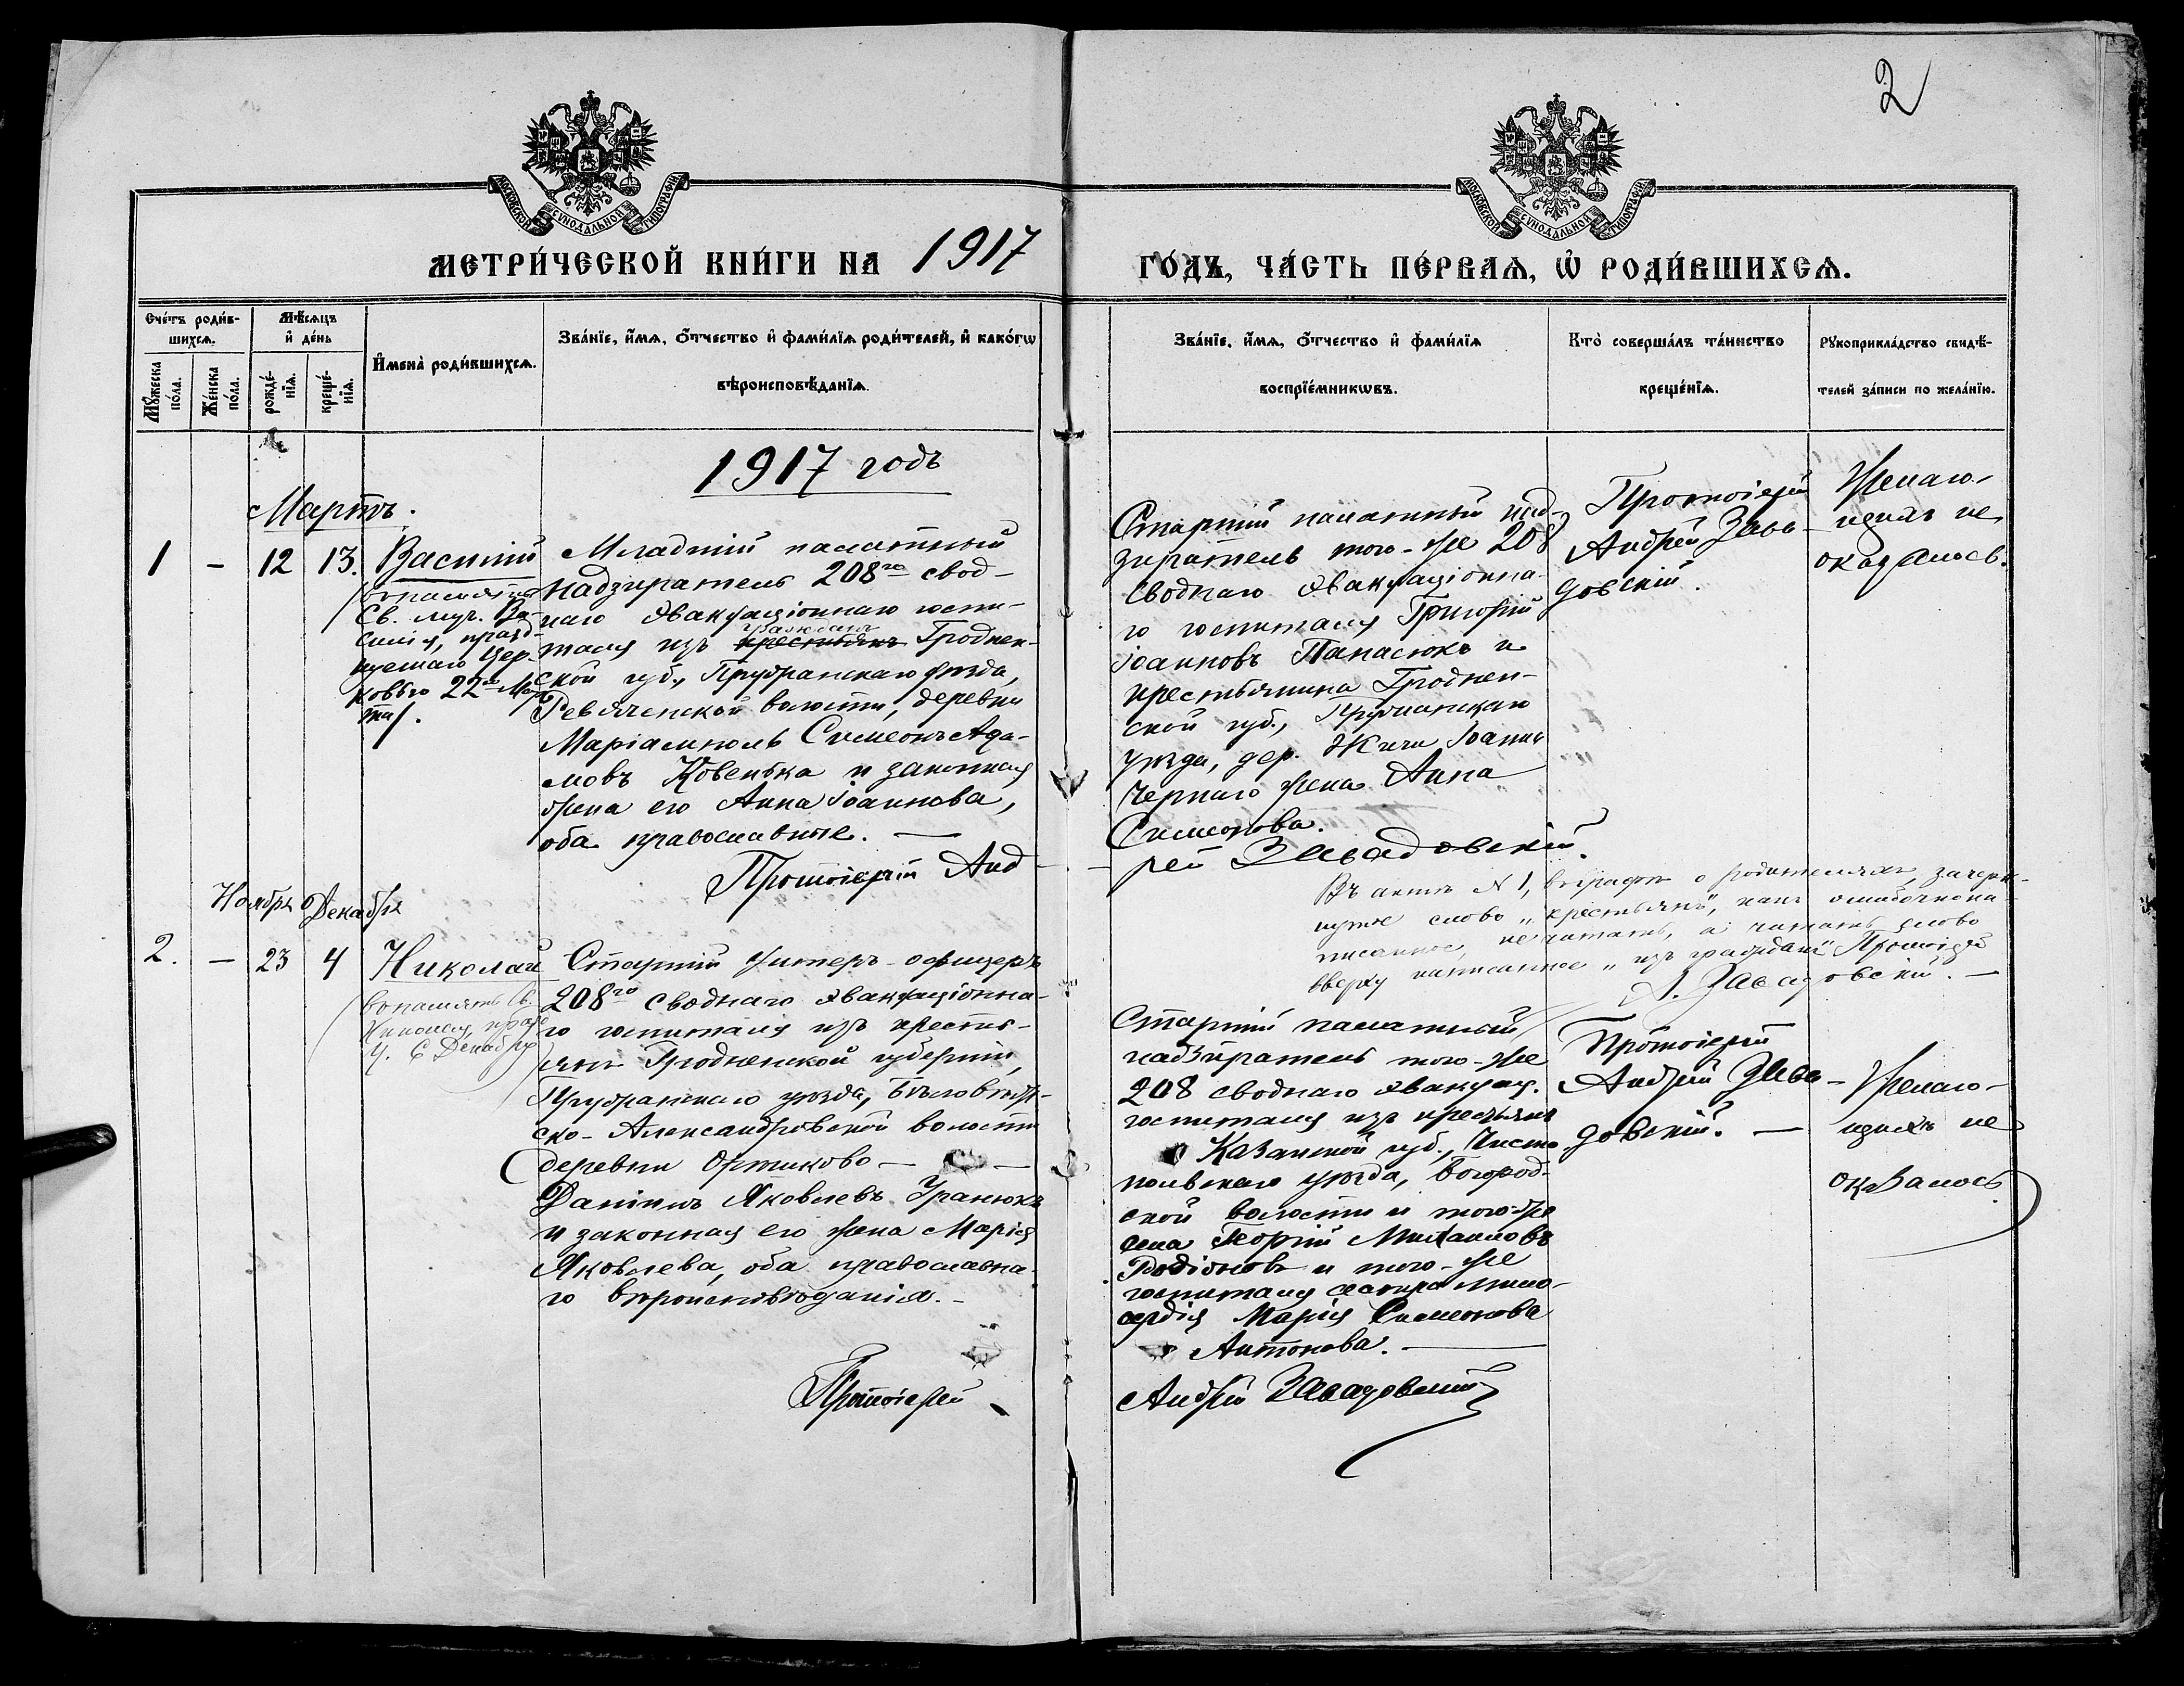 2
МОСКОВСКОЙ СѴНОДАЛЬНОЙ ТИПОГРАФІИ
МОСКОВСКОЙ СѴНОДАЛЬНОЙ ТИПОГРАФІИ
МЕТРИ́ЧЕСКОЙ КНИ́ГИ НА 1917 ГО́ДЪ, ЧА́СТЬ ПЕ́РВАѦ, Ѡ҆ РОДИ́ВШИХСѦ.
Сче́тъ роди́в-
шихсѧ.
Мꙋ́жеска по́ла.
Же́нска по́ла.
Мѣ́сѧцъ
и҆ де́нь
рожде́-
нїѧ.
креще́-
нїѧ.
И҆мена̀ роди́вшихсѧ.
Зва́нїе, и҆́мѧ, ѻ҆́тчество и҆ фами́лїѧ роди́телей, и҆ како́гѡ
вѣроисповѣ́данїѧ.
Зва́нїе, и҆́мѧ, ѻ҆́тчество и҆ фами́лїѧ
воспрїе́мникѡвъ.
Кто̀ соверша́лъ та́инство
креще́нїѧ.
Рꙋкоприкла́дство свидѣ́-
телей за́писи по жела́нїю.
1917 годъ
Мартъ.
1 - 12 13. Василій
(въ память
Св. муч. Ва-
силія, празд-
нуемаго Цер-
ковью 22го Мар-
та).
Младшій палатный
надзиратель 208го свод-
наго эвакуаціоннаго госпи-
граждан
таля изъ крестьянъ Гроднен-
ской губ., Пружанскаго уѣзда,
Ревятической волости, деревни
Маріамполь Симеонъ Ада-
мовъ Ковенька и законная
жена его Анна Іоаннова,
оба православные. —
Протоіерей Анд-
Старшій палатный над-
зиратель того-же 208
своднаго эвакуаціонна-
го госпиталя Григорій
Іоанновъ Панасюкъ и
крестьянина Гроднен-
ской губ., Пружанскаго
уѣзда, дер. Жичи Іоанна
Чернаго жена Анна
Симеонова.
-рей Завадовскій.
Протоіерей
Андрей Зава-
довскій.
Желаю-
щихъ не
оказалось.
Въ актѣ № 1, въ графѣ о родителяхъ, зачерк-
нутое слово „крестьянъ", какъ ошибочно на-
писанное, не читать, а читать слово
вверху написанное „изъ граждан" Протоіерей
А. Завадовскій. —
Ноябрь Декабрь
2. - 23 4 Николай
(въ память Св.
Николая, праздн.
Ц. 6 Декабря)
Старшій унтеръ-офицеръ
208го своднаго эвакуаціонна-
го госпиталя изъ кресть-
янъ Гродненской губерніи,
Пружанскаго уѣзда, Бѣловѣж-
ско-Александровской волости
деревни —
Даніилъ Яковлевъ Уранюкъ
и законная его жена Марія
Яковлева, оба православна-
го вѣроисповѣданія. -
Протоіерей
Старшій палатный
надзиратель того-же
208 своднаго эвакуац.
госпиталя изъ крестьянъ
Казанской губ., Чисто-
польскаго уѣзда, Богород-
ской волости и того-же
села Георгій Михаиловъ
Родіоновъ и того-же
госпиталя сестра мило-
сердія Марія Симеонова
Антонова. —
Андрей Завадовскій
Протоіерей
Андрей Зава-
довскій. —
Желаю-
щихъ не
оказалось